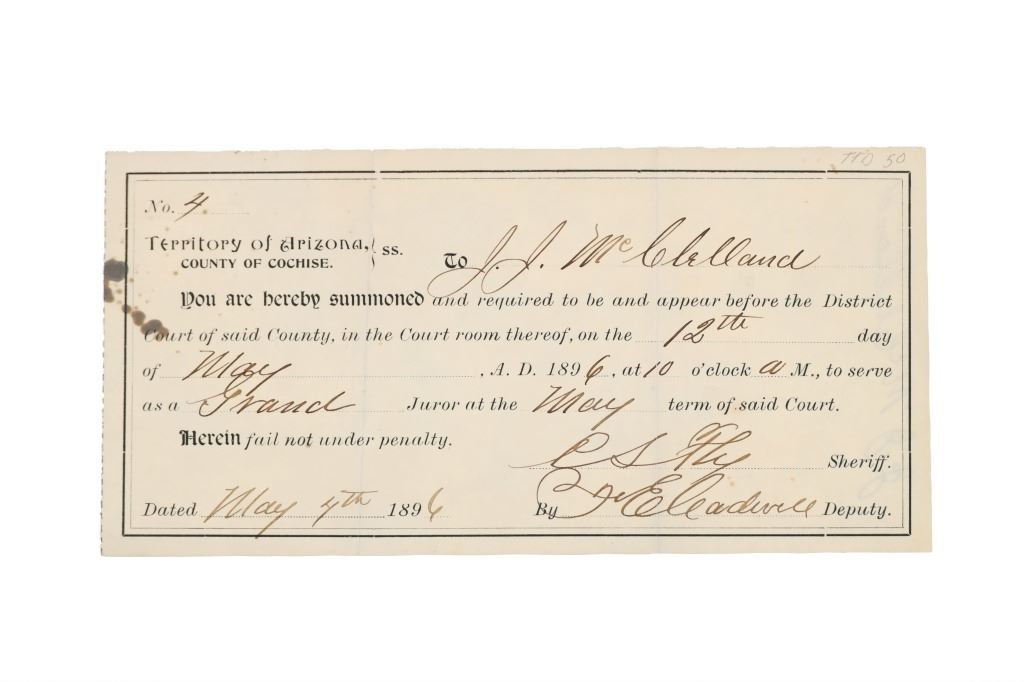 TTD 50
No. 4
Territory of Arizona, } ss.
COUNTY OF COCHISE.
To J. J. McClelland
You are hereby summoned and required to be and appear before the District
Court of said County, in the Court room thereof, on the 12th day
of May, A. D. 1896, at 10 o'clock a M., to serve
as a Grand Juror at the May term of said Court.
Herein fail not under penalty.
C S Fly Sheriff.
Dated May 4th 1896 By Deputy.